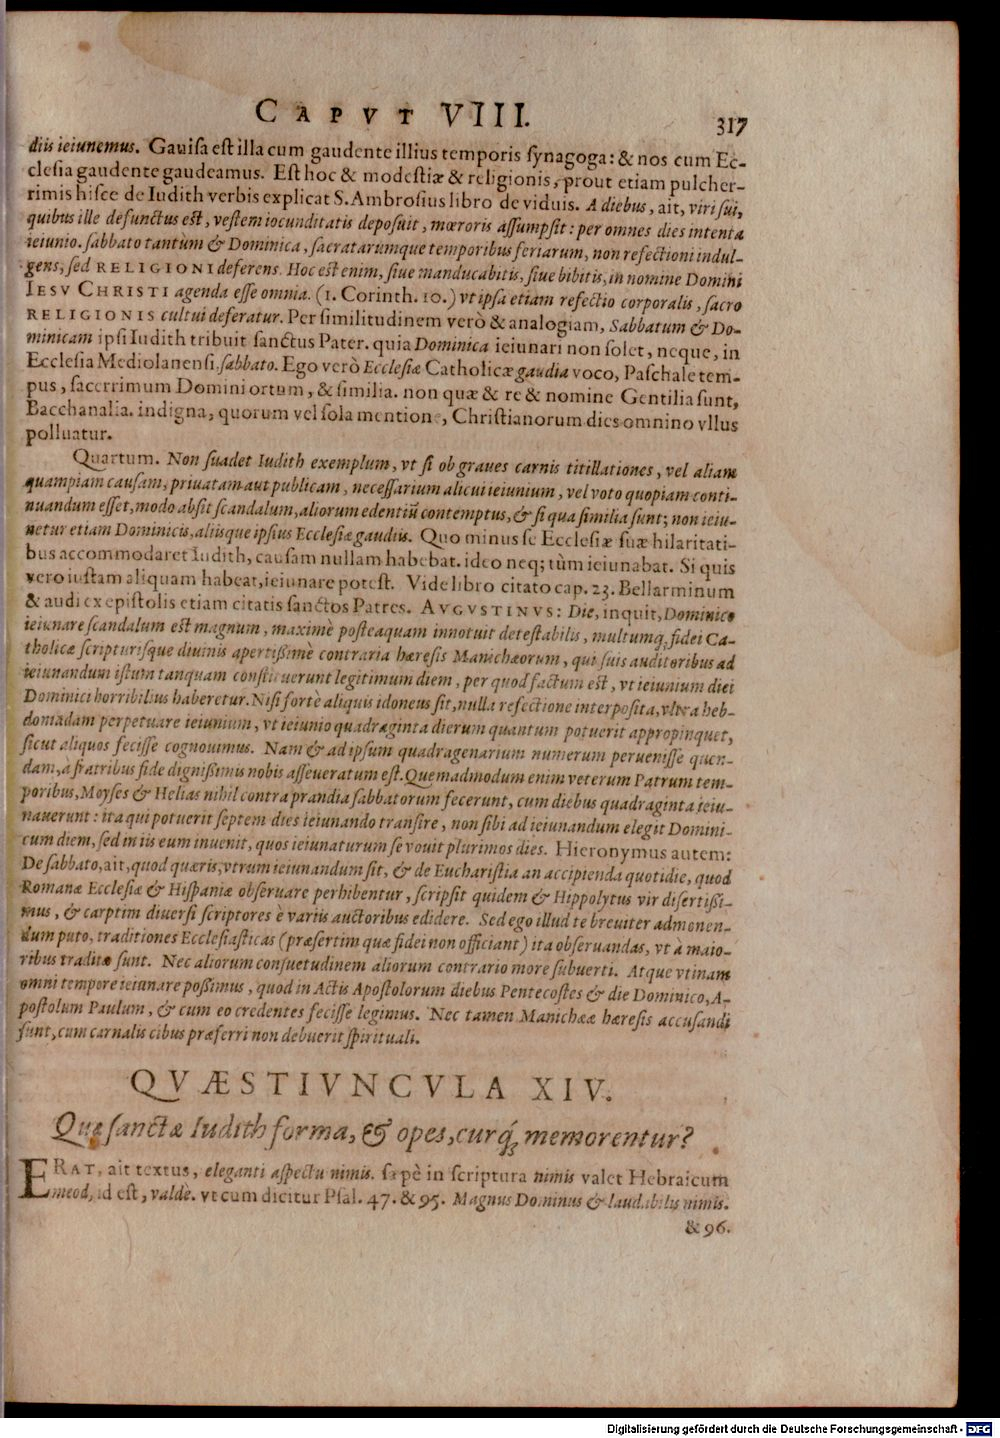 CAPVT VIII.
317
diis ieiunemus. Gauisa est illa cum gaudente illius temporis synagoga: & nos cum Ec-
clesia gaudente gaudeamus. Est hoc & modestiæ & religionis, prout etiam pulcher-
rimis hisce de Iudith verbis explicat S. Ambrosius libro de viduis. A diebus, ait, viri sui,
quibus ille defunctus est, vestem iocunditatis deposuit, mœroris assumpsit: per omnes dies intenta
ieiunio. sabbato tantùm & Dominica, sacratarúmque temporibus feriarum, non refectioni indul-
gens, sed RELIGIONI deferens. Hoc est enim, siue manducabitis, siue bibitis, in nomine Domini
IESV CHRISTI agenda esse omnia. (1. Corinth. 10.) vt ipsa etiam refectio corporalis, sacro
RELIGIONIS cultui deferatur. Per similitudinem verò & analogiam, Sabbatum & Do-
minicam ipsi Iudith tribuit sanctus Pater. quia Dominica ieiunari non solet, neque, in
Ecclesia Mediolanensi, sabbato. Ego verò Ecclesiæ Catholicæ gaudia voco, Paschale tem-
pus, sacerrimum Domini ortum, & similia. non quæ & re & nomine Gentilia sunt,
Bacchanalia. indigna, quorum vel sola mentione, Christianorum dies omnino vllus
polluatur.
Quartum. Non suadet Iudith exemplum, vt si ob graues carnis titillationes, vel aliam
quampiam causam, priuatam aut publicam, necessarium alicui ieiunium, vel voto quopiam conti-
nuandum esset, modo absit scandalum, aliorum edentiũ contemptus, & si qua similia sunt; non ieiu-
netur etiam Dominicis, aliisque ipsius Ecclesiæ gaudiis. Quo minus se Ecclesiæ suæ hilaritati-
bus accommodaret Iudith, causam nullam habebat. ideo neq; tùm ieiunabat. Si quis
vero iustam aliquam habeat, ieiunare potest. Vide libro citato cap. 23. Bellarminum
& audi ex epistolis etiam citatis sanctos Patres. AVGVSTINVS: Die, inquit, Dominico
ieiunare scandalum est magnum, maximè posteaquam innotuit detestabilis, multumq; fidei Ca-
tholicæ scripturisque diuinis apertißimè contraria hæresis Manichæorum, qui suis auditoribus ad
ieiunandum istum tanquam constituerunt legitimum diem, per quod factum est, vt ieiunium diei
Dominici horribilius haberetur. Nisi fortè aliquis idoneus sit, nulla refectione interposita, vltra heb-
domadam perpetuare ieiunium, vt ieiunio quadraginta dierum quantum potuerit appropinquet,
sicut aliquos fecisse cognouimus. Nam & ad ipsum quadragenarium numerum peruenisse quen-
dam, à fratribus fide dignißimis nobis asseueratum est. Quemadmodum enim veterum Patrum tem-
poribus, Moyses & Helias nihil contra prandia sabbatorum fecerunt, cum diebus quadraginta ieiu-
nauerunt: ita qui potuerit septem dies ieiunando transire, non sibi ad ieiunandum elegit Domini-
cum diem, sed in iis eum inuenit, quos ieiunaturum se vouit plurimos dies. Hieronymus autem:
De sabbato, ait, quod quæris, vtrum ieiunandum sit, & de Eucharistia an accipienda quotidie, quod
Romanæ Ecclesiæ & Hispaniæ obseruare perhibentur, scripsit quidem & Hippolytus vir disertißi-
mus, & carptim diuersi scriptores è variis auctoribus edidere. Sed ego illud te breuiter admonen-
dum puto, traditiones Ecclesiasticas (præsertim quæ fidei non officiant) ita obseruandas, vt à maio-
ribus traditæ sunt. Nec aliorum consuetudinem aliorum contrario more subuerti. Atque vtinam
omni tempore ieiunare poßimus, quod in Actis Apostolorum diebus Pentecostes & die Dominico, A-
postolum Paulum, & cum eo credentes fecisse legimus. Nec tamen Manichææ hæresis accusandi
sunt, cum carnalis cibus præferri non debuerit spirituali.
QVÆSTIVNCVLA XIV.
Quæ sanctæ Iudith forma, & opes, curq́; memorentur?
ERAT, ait textus, eleganti aspectu nimis. sæpè in scriptura nimis valet Hebraicum
meod, id est, valdè. vt cum dicitur Psal. 47. & 95. Magnus Dominus & laudabilis nimis.
& 96.
Digitalisierung gefördert durch die Deutsche Forschungsgemeinschaft - DFG